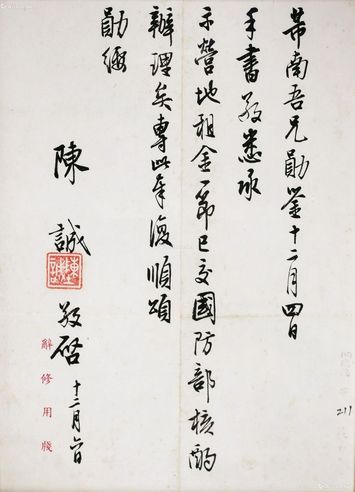 芾南吾兄勛鑒十二月四日
手書敬悉承
示營地租金一節已交國防部核酌
辦理矣專此奉復順頌
勛綏
陳誠
陳誠
敬啓十二月
辭修用牋
211